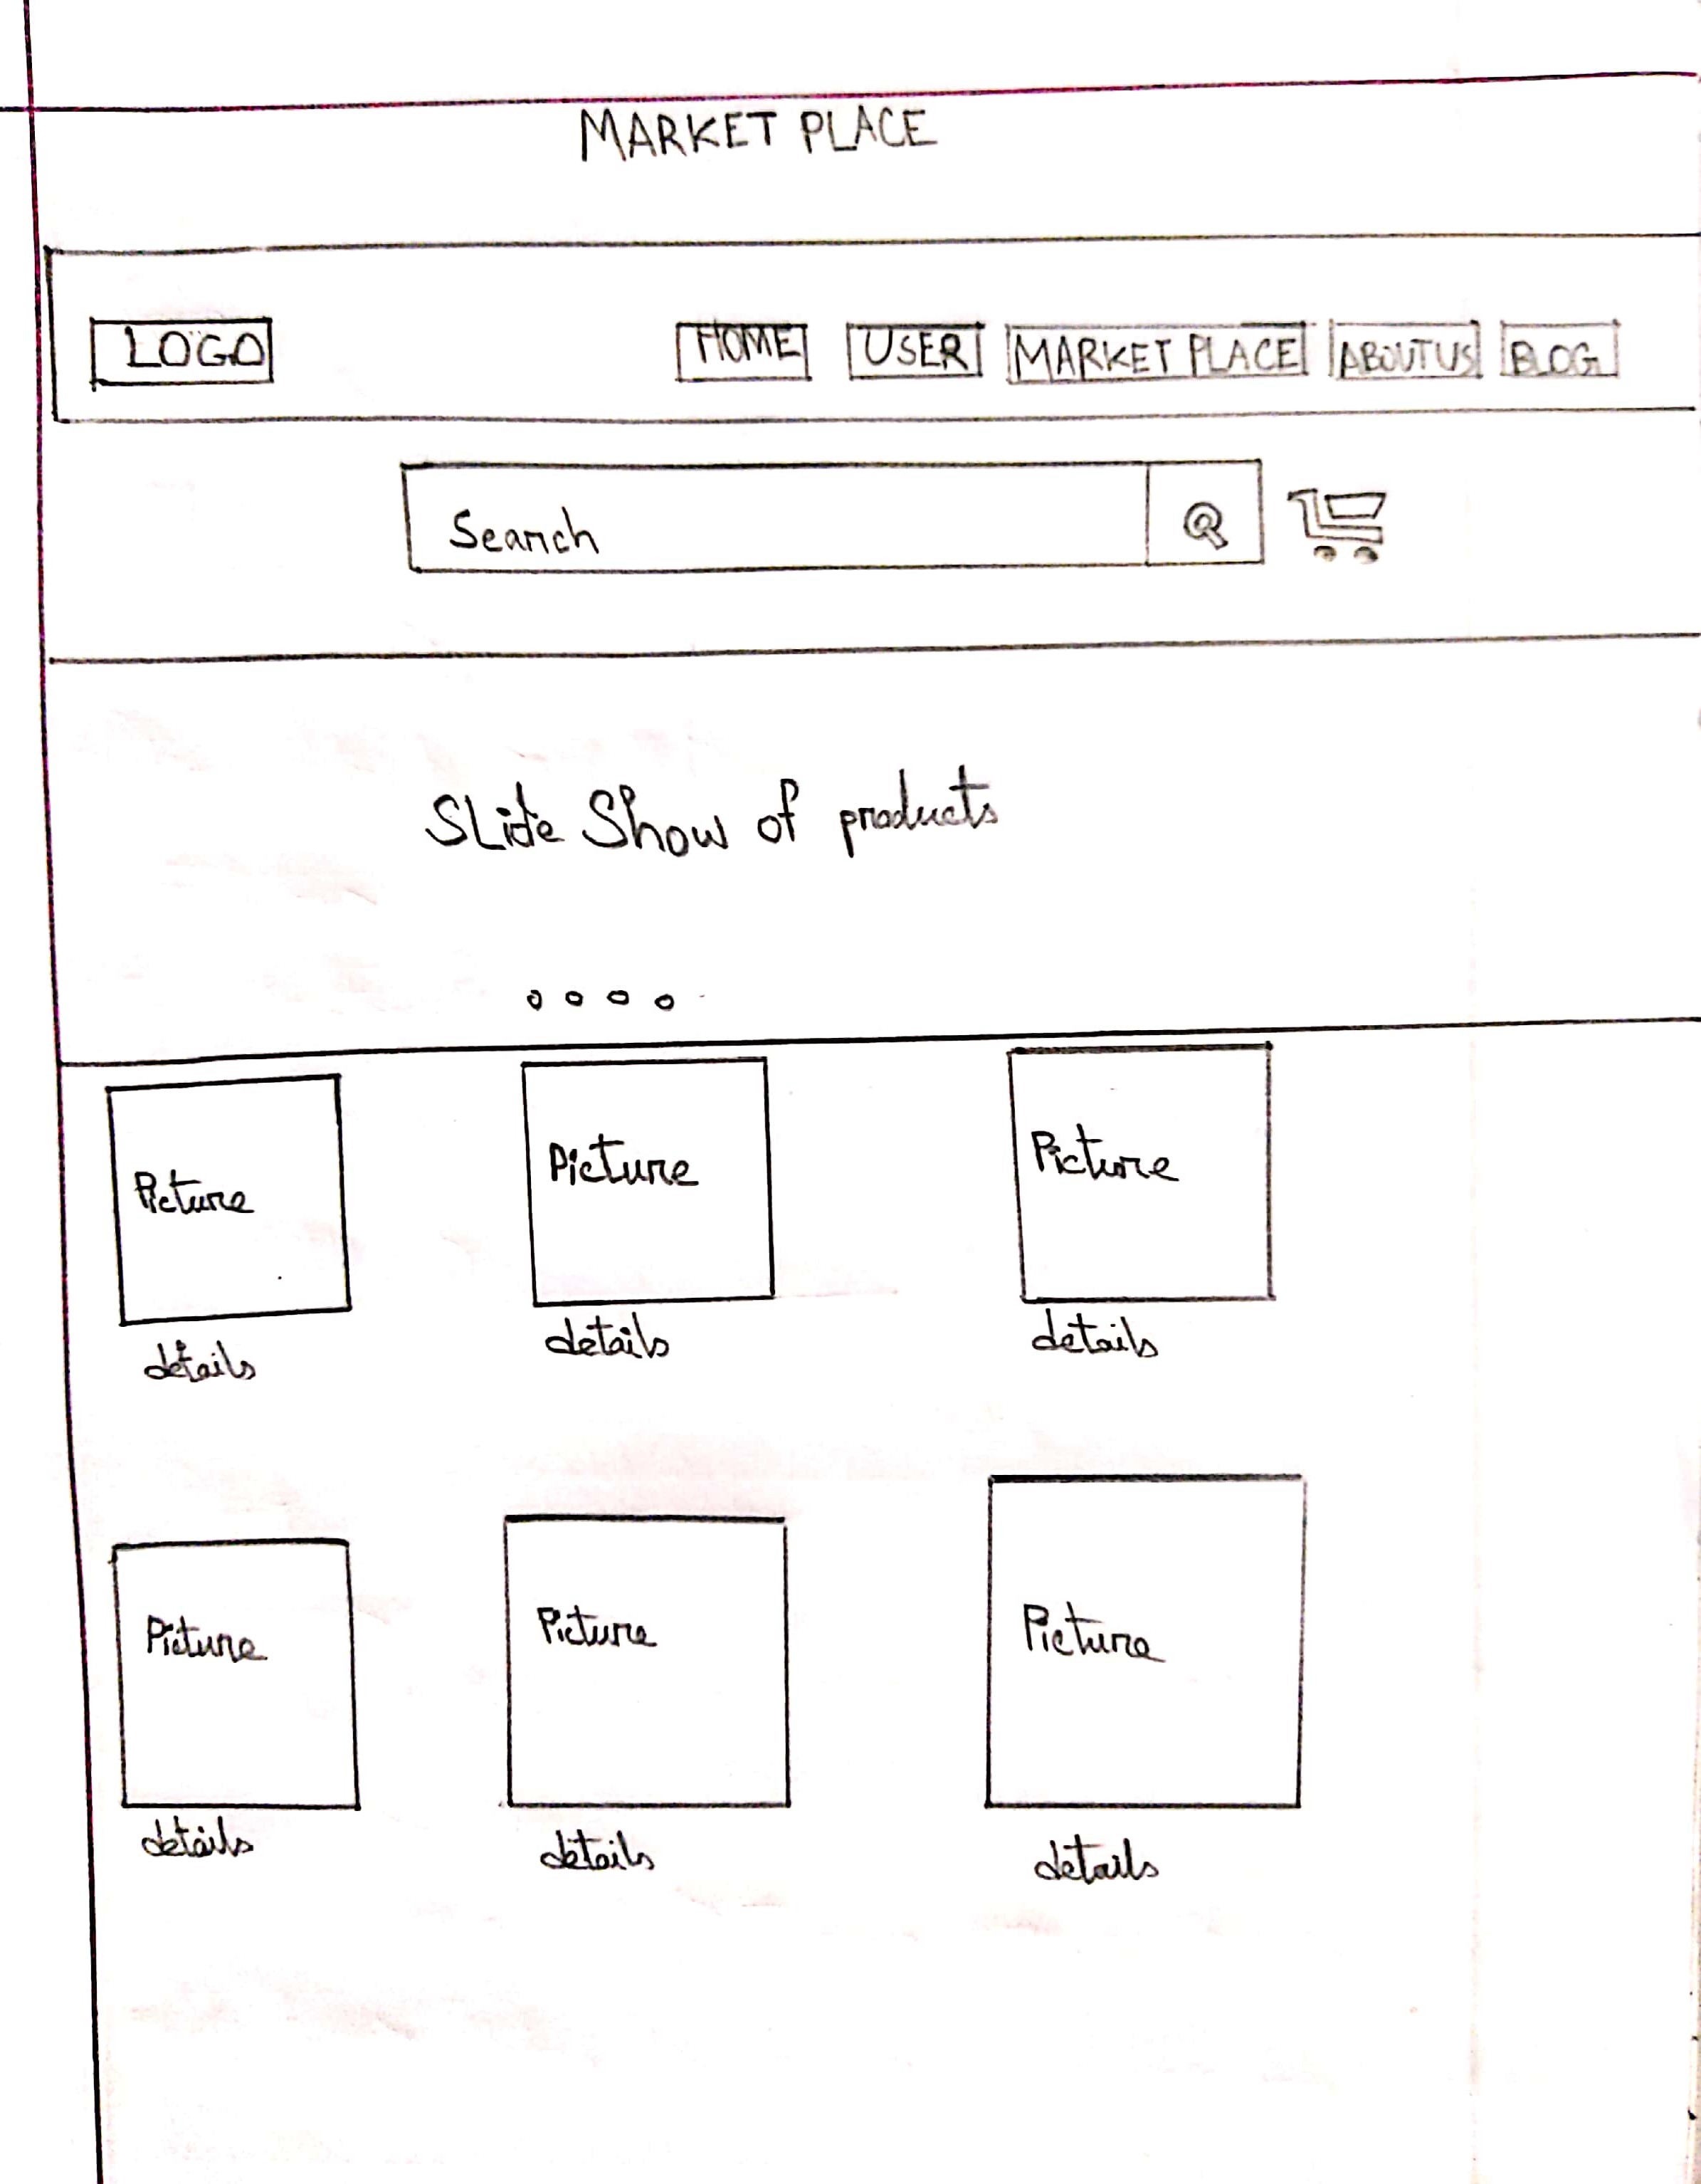 MARKET PLACE
LOGO HOME USER MARKET PLACE ABOUT US BLOG
Search
Slide Show of products
Picture Picture Picture
details details details
Picture Picture Picture
details details details